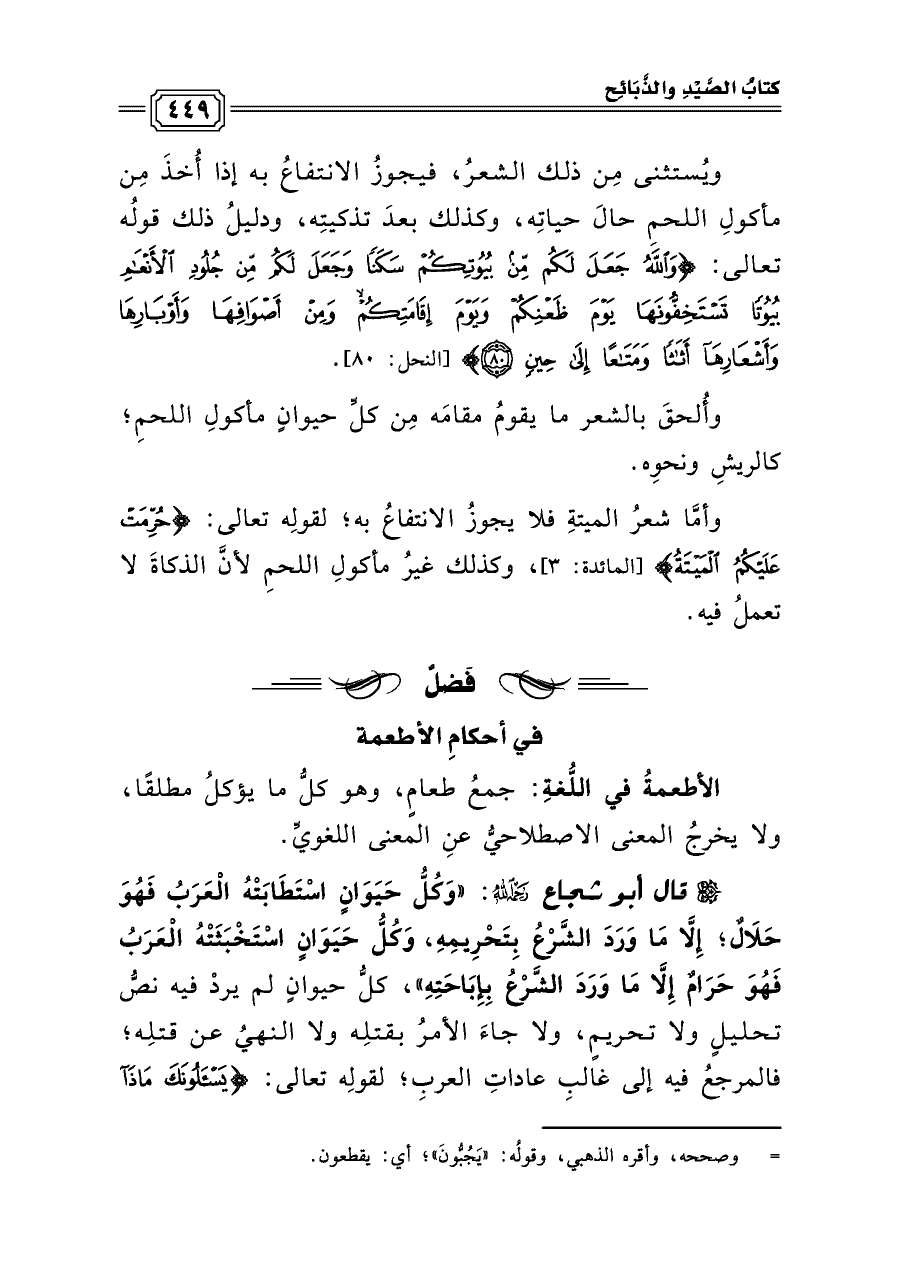 كتابُ الصَّيْدِ والذَّبَائِحِ
٤٤٩
ويُستثنى مِن ذلك الشعرُ، فيجوزُ الانتفاعُ به إذا أُخذَ مِن
مأكولِ اللحمِ حالَ حياتِه، وكذلك بعدَ تذكيتِه، ودليلُ ذلك قولُه
تعالى: ﴿وَٱللَّهُ جَعَلَ لَكُم مِّنۢ بُيُوتِكُمْ سَكَنًا وَجَعَلَ لَكُم مِّن جُلُودِ ٱلْأَنْعَٰمِ
بُيُوتًا تَسْتَخِفُّونَهَا يَوْمَ ظَعْنِكُمْ وَيَوْمَ إِقَامَتِكُمْ ۙ وَمِنْ أَصْوَافِهَا وَأَوْبَارِهَا
وَأَشْعَارِهَآ أَثَٰثًا وَمَتَٰعًا إِلَىٰ حِينٍ ۝٨٠﴾ [النحل: ٨٠].
وأُلحقَ بالشعر ما يقومُ مقامَه مِن كلِّ حيوانٍ مأكولِ اللحمِ؛
كالريشِ ونحوِه.
وأمَّا شعرُ الميتةِ فلا يجوزُ الانتفاعُ به؛ لقولِه تعالى: ﴿حُرِّمَتْ
عَلَيْكُمُ ٱلْمَيْتَةُ﴾ [المائدة: ٣]، وكذلك غيرُ مأكولِ اللحمِ لأنَّ الذكاةَ لا
تعملُ فيه.
فَصْلٌ
في أحكامِ الأطعمة
الأطعمةُ في اللُّغةِ: جمعُ طعامٍ، وهو كلُّ ما يؤكلُ مطلقًا،
ولا يخرجُ المعنى الاصطلاحيُّ عنِ المعنى اللغويِّ.
قال أبو شجاع رَحِمَهُ اللَّهُ: «وَكُلُّ حَيَوَانٍ اسْتَطَابَتْهُ الْعَرَبُ فَهُوَ
حَلَالٌ؛ إِلَّا مَا وَرَدَ الشَّرْعُ بِتَحْرِيمِهِ، وَكُلُّ حَيَوَانٍ اسْتَخْبَثَتْهُ الْعَرَبُ
فَهُوَ حَرَامٌ إِلَّا مَا وَرَدَ الشَّرْعُ بِإِبَاحَتِهِ»، كلُّ حيوانٍ لم يردْ فيه نصُّ
تحليلٍ ولا تحريمٍ، ولا جاءَ الأمرُ بقتلِه ولا النهيُ عن قتلِه؛
فالمرجعُ فيه إلى غالبِ عاداتِ العربِ؛ لقولِه تعالى: ﴿يَسْـَٔلُونَكَ مَاذَآ
= وصححه، وأقره الذهبي، وقولُه: «يَجُبُّونَ»؛ أي: يقطعون.